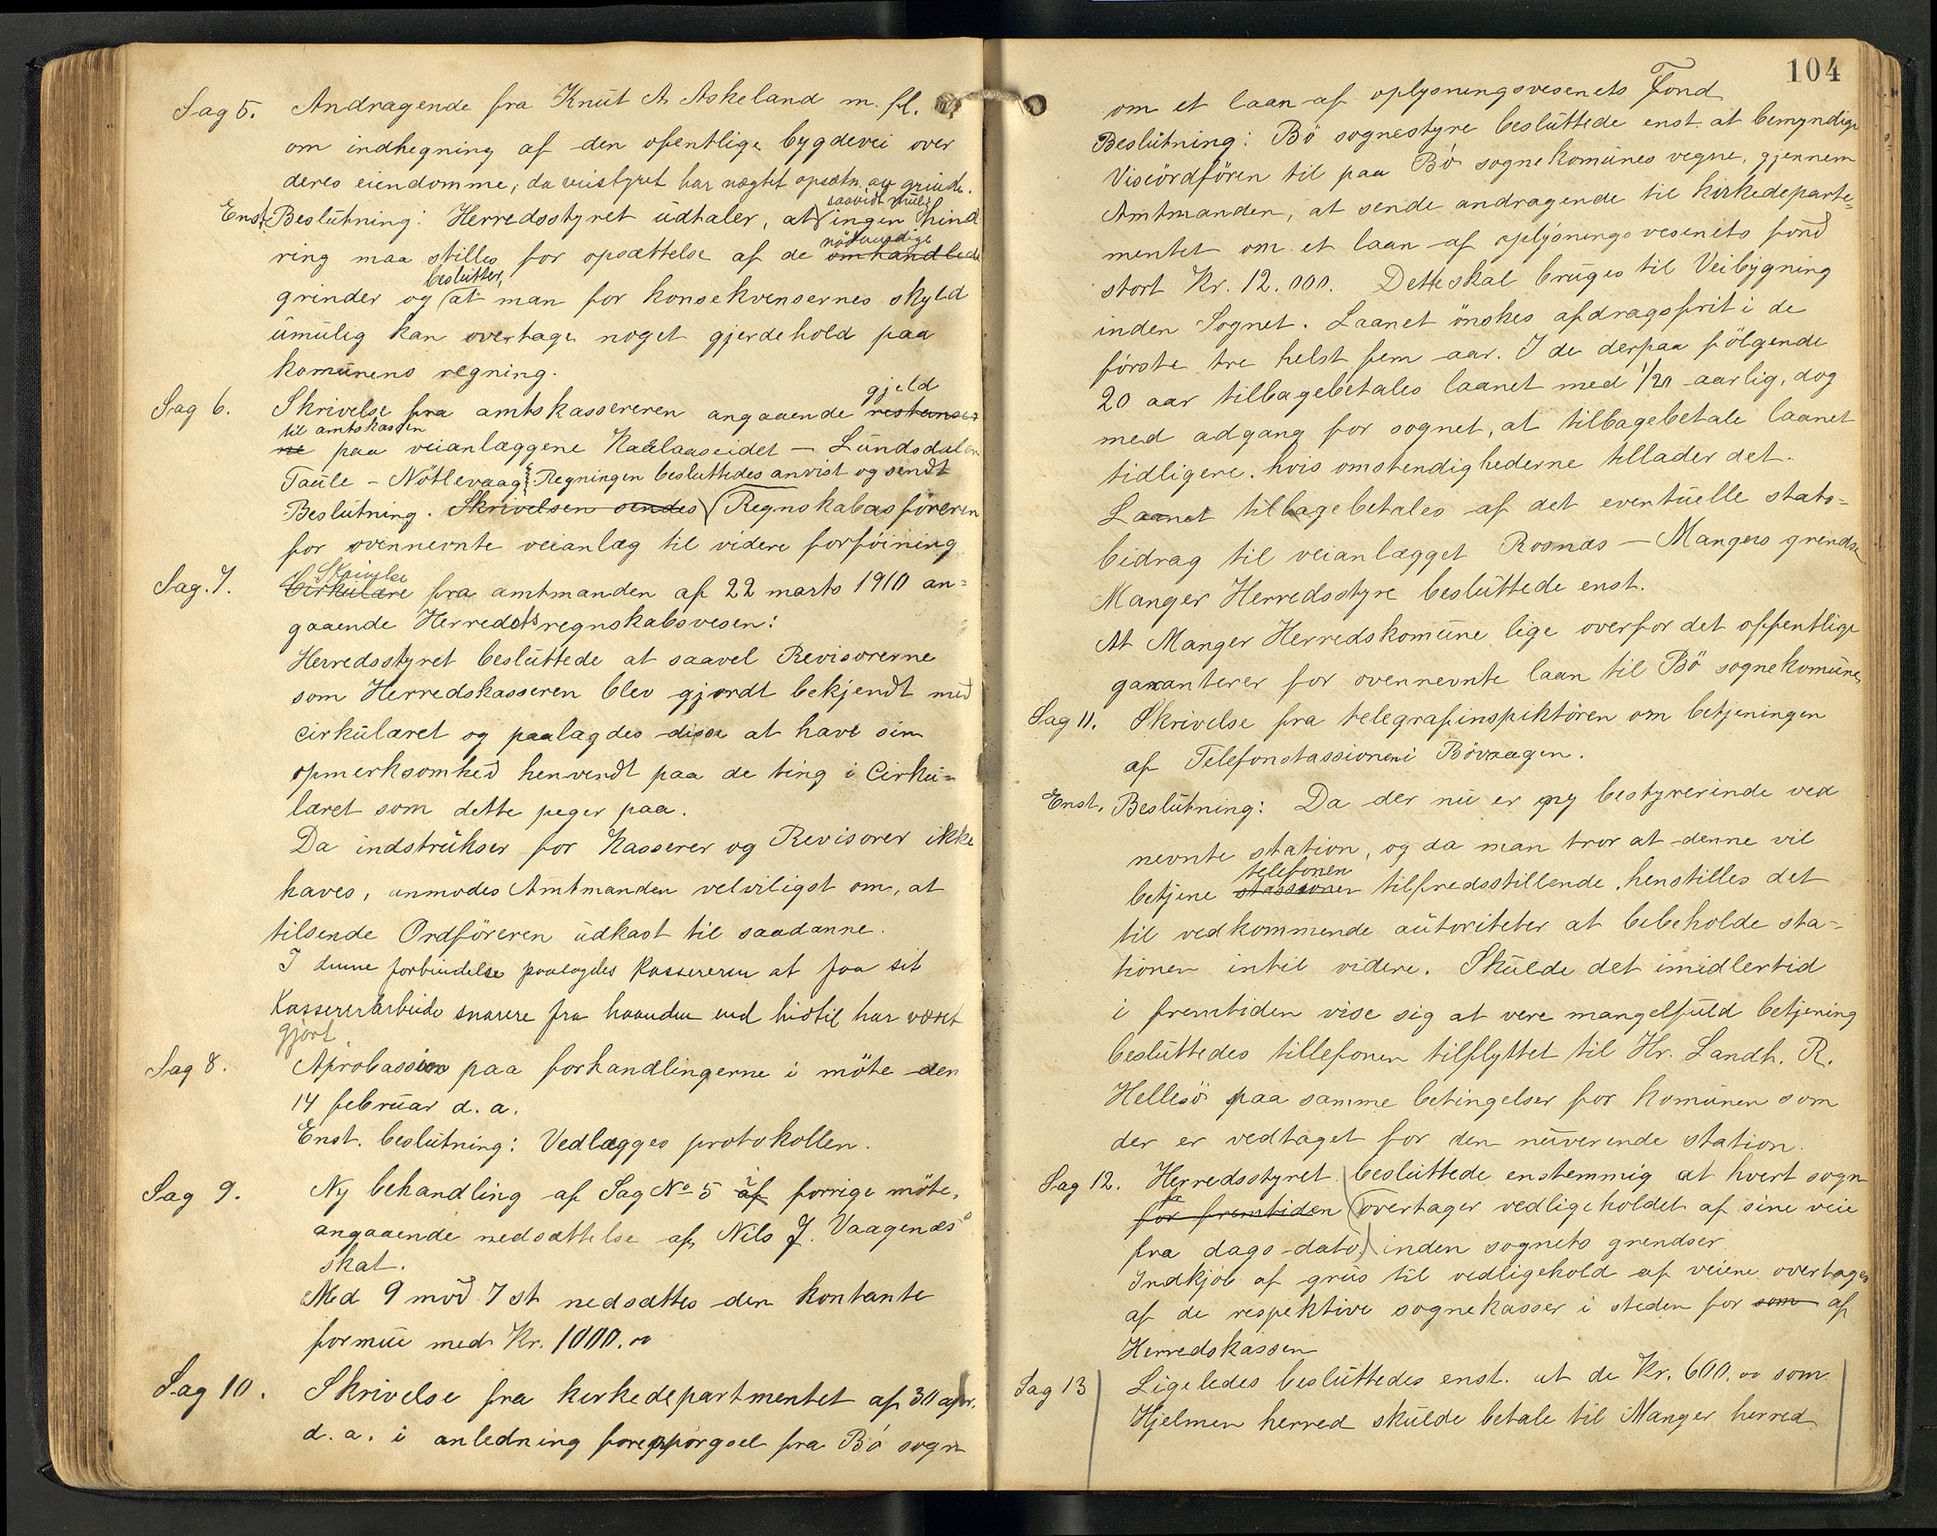 Sag 5. Andragende fra Knut A. Askeland m. fl.
om indhegning af den ofentlige bygdevei over
deres eiendomme, da veistyret har nægtet opsætn. av grinde.
saavidt mulig
Enst. Beslutning: Herredsstyret udtaler, at ingen hind
nödvendige
ring maa stilles for opsættelse af de omhandlede
beslutter,
grinder og at man for konsekvensernes skyld
umulig kan overtage noget gjerdehold paa
komunens regning.
gjeld
Sag 6. Skrivelse fra amtskassereren angaaende restanser
til amtskassen
ne paa veianlæggene Kaalaaseidet – Lundsdalen
Taule – Nötlevaag Regningen besluttedes anvist og sendt
Beslutning. Skrivelsen sendes Regnskabasföreren
for ovennevnte veianlæg til videre forföining
Skrivelse
Sag. 7. Cirkulære fra amtmanden af 22 marts 1910 an=
gaaende Herredets regnskabsvesen:
Herredsstyret besluttede at saavel Revisorerne
som Herredskasseren blev gjordt bekjendt med
cirkulæret og paalagdes disse at have sin
opmerksomhed henvendt paa de ting i Cirku=
læret som dette peger paa.
Da indstrukser for Kasserer og Revisorer ikke
haves, anmodes Amtmanden velviligst om, at
tilsende Ordföreren udkast til saadanne.
I denne forbindelse paalagdes Kassereren at faa sit
Kassererarbeide snarere fra haanden end hidtil har været
gjort
Sag 8. Aprobassion paa forhandlingerne i möte den
14 februar d. a.
Enst. beslutning: Vedlægges protokollen.
Sag 9. Ny behandling af Sag No 5 af i forrige möte,
angaaende nedsættelse af Nils J. Vaagenæs
skat.
Med 9 mod 7 st nedsættes den kontante
formue med Kr. 1000.00
Sag 10. Skrivelse fra kirkedepartmentet af 30 apr.
d. a. i anledning forespörgsel fra Bö sogn
104
om et laan af oplysningsvesenets Fond
Beslutning: Bö sognestyre besluttede enst. at bemyndige
Viseordfören til paa Bö sognekomunes vegne, gjennem
Amtmanden, at sende andragende til kirkedeparte=
mentet om et laan af oplysningsvesenets fond
stort Kr. 12.000. Dette skal bruges til Veibygning
inden Sognet. Laanet önskes afdragsfrit i de
förste tre helst fem aar. I de derpaa fölgende
20 aar tilbagebetales laanet med 1/20 aarlig, dog
med adgang for sognet, at tilbagebetale laanet
tidligere. hvis omstendighederne tillader det.
Laanet tilbagebetales af det eventuelle stats=
bidrag til veianlægget Rosnæs – Mangers grendse
Manger Herredsstyre besluttede enst.
At Manger Herredskomune lige overfor det offentlige
garanterer for ovennevnte laan til Bö sognekomune,
Sag 11. Skrivelse fra telegrafinspiktören om betjeningen
af Telefonstassionen i Bövaagen.
Enst. Beslutning: Da der nu er ny bestyrerinde ved
nevnte station, og da man tror at denne vil
telefonen
betjene stassionen tilfredsstillende, henstilles det
til vedkommende autoriteter at bebeholde sta=
tionen intil videre. Skulde det imidlertid
i fremtiden vise sig at vere mangelfuld betjening
besluttedes tillefonen tilflyttet til Hr. Landh. R.
Hellesö paa samme betingelser for komunen som
der er vedtaget for den nuverende station.
Sag 12. Herredsstyret besluttede enstemmig at hvert sogn
for fremtiden overtager vedligeholdet af sine veie
fra dags-dato, inden sognets grendser
Indkjöb af grus til vedligehold af veiene overtages
af de respektive sognekasser i steden for som af
Herredskassen
Sag 13 Ligeledes besluttedes enst. at de Kr. 600.00 som
Hjelmen herred skulde betale til Manger herred